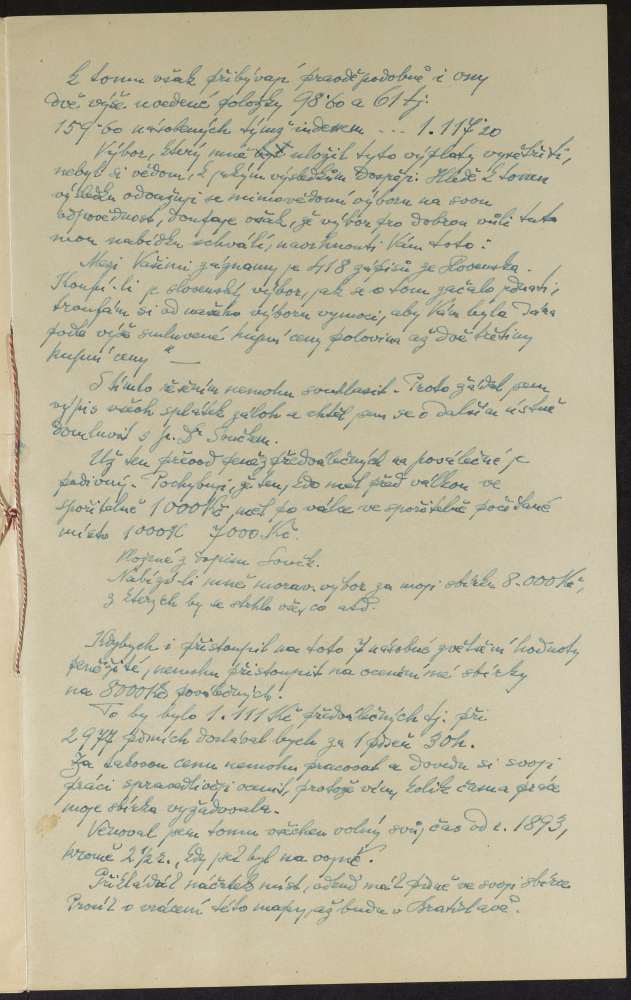 K tomu však přibývají pravděpodobně i ony
dvě výše uvedené položky 98·60 a 61 tj.
159·60 násobených týmž indexem ... 1.117·20
Výbor, který mně uložil tyto výplaty vyšetřiti,
nebyl si vědom, k jakým výsledkům dospěji. Hledě k tomu
výsledku odvažuji se mimo vědomí výboru na svou
odpovědnost, doufaje však, že výbor pro dobrou vůli tuto
mou nabídku schválí, navrhnouti Vám toto:
Mezi Vašimi záznamy je 418 zápisů ze Slovenska.
Koupí-li je slovenský výbor, jak se o tom začalo jednati,
troufám si od našeho výboru vymoci, aby Vám byla dána
podle výše smluvené kupní ceny polovina až dvě třetiny
kupní ceny" —
S tímto řešením nemohu souhlasit. Proto žádal jsem
výpis všech splátek záloh a chtěl jsem se o dalším ústně
domluvit s p. Dr Součkem.
Už ten převod peněz předválečných na poválečné je
podivný. Pochybuji, že ten, kdo měl před válkou ve
spořitelně 1000 K, měl po válce ve spořitelně počítané
místo 1000 K 7000 Kč.
z dopisu Souč.
Nabízí-li mně morav. výbor za moji sbírku 8.000 Kč,
z kterých by se strhlo vše, co atd.
Kdybych i přistoupil na toto 7 násobné zvětšení hodnoty
peněžité, nemohu přistoupit na ocenění mé sbírky
na 8000 Kč poválečných.
To by bylo 1.111 Kč předválečných tj. při
2977 písních dostával bych za 1 píseň 30 h.
Za takovou cenu nemohu pracovat a dovedu si svoji
práci spravedlivěji ocenit, protože vím, kolik času práce
moje sbírka vyžadovala.
Věnoval jsem tomu všechen volný svůj čas od r. 1893,
kromě 2½ r., kdy jsem byl na vojně.
Přikládám náčrtek míst, odkud mám písně ve svoji sbírce
Prosím o vrácení této mapy, až budu v Bratislavě.